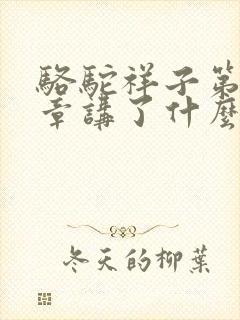 駱駝祥子第
章講了什麼
冬天的柳葉